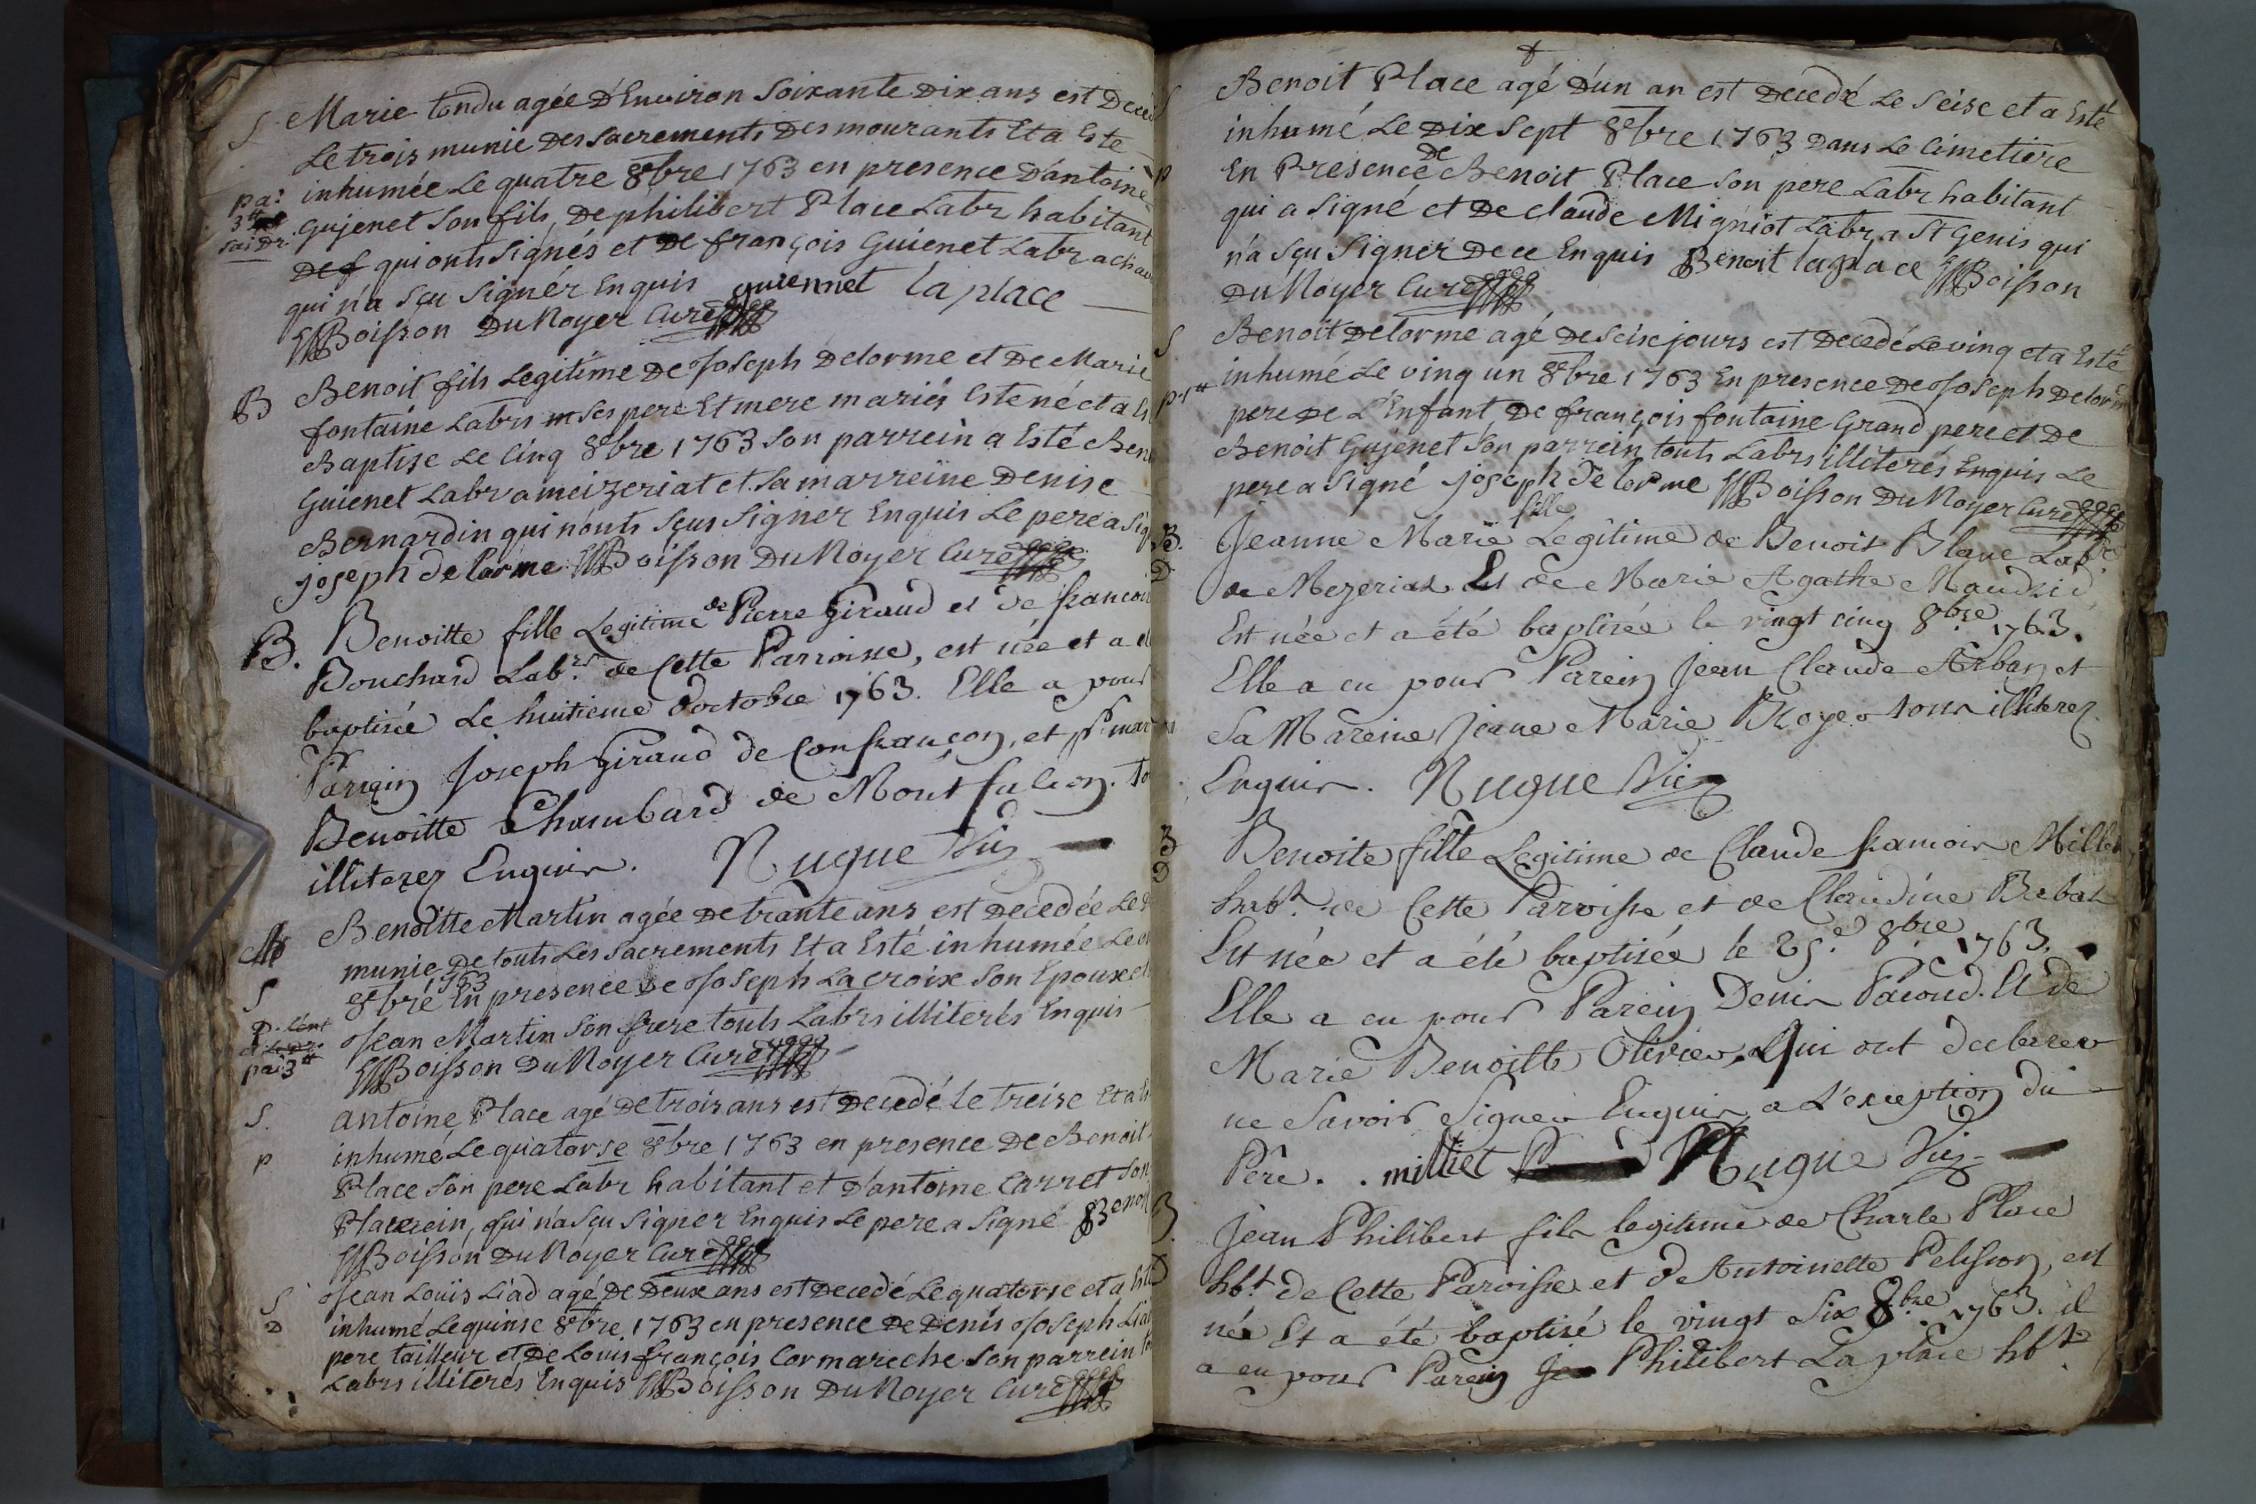 S Marie tondu agée D'Environ Soixante Dix ans est Deced
Le trois munie Des sacrements Des mourants Et a Este
pa: inhumée Le quatre 8bre 1763 en presence D'antoine
3tt gujenet Son fils, De philibert Place Labr habitant
Def qui onts Signés et De françois Guienet Labr a chav
qui n'a Sçu Signér Enquis guiennet la place
Boisson Du Noyer Curé
B Benoit fils Legitime De Joseph Delorme et De Marie
fontaine Labrs m Ses pere Et mere mariés Este né et a Es
Baptise Le Cinq 8bre 1763 Son parrein a Esté Ben
Guienet Labr a meizeriat et Sa marreine Denise
Bernardin qui n'onts Sçus Signer Enquis Le pere a Sig
joseph de lorme Boisson Du Noyer Curé
B. Benoitte fille Legitime de Pierre Giraud et de francoi
Bouchard Labrs de Cette Parroisse, est née et a é
baptisée Le huitieme d'octobre 1763. Elle a pour
Parrain Joseph Giraud de Confrançon, et pr mar
Benoitte Chambard de Montfalcon. To
illiterez Enquis. Nugue Vic
Benoitte Martin agée De trante ans est Decedée Le
munie De touts Les Sacrements Et a Esté inhumée Le
S 8bre 1763 En presence De Joseph Lacroix Son Epoux et
Jean Martin Son frere touts Labrs illiterés Enquis
pa: 3tt Boisson Du Noyer Curé
S. antoine Place agé De trois ans est Decedé le treise Et a Es
p inhumé Le quatorse 8bre 1763 en presence De Benoit
Place Son pere Labr habitant et D'antoine Carret Son
Parrein, qui n'a Sçu Signer Enquis Le pere a Signé Benoi
Boisson Du Noyer Curé
S Jean Louis Liad agé De Deux ans est Decedé Le quatorse et a Esté
D inhumé Le quinse 8bre 1763 en presence De Denis Joseph Liad
pere tailleur et De Louis françois Cormareche Son parrein to
Labrs illiterés Enquis Boisson Du Noyer Curé
S Benoit Place agé D'un an est Decedé Le Seise et a Esté
inhumé Le Dix Sept 8bre 1763 Dans Le Cimetiere
p En Presence de Benoit Place Son pere Labr habitant
qui a Signé et De claude Migniot Labr a St Genis qui
n'a Sçu Signer De ce Enquis Benoit laplace Boisson
Du Noyer Curé
S Benoit Delorme agé De Seise jours est Decedé Le ving et a Esté
p. 1tt inhumé Le ving un 8bre 1763 En presence De Joseph Delorm
pere De L'Enfant De françois fontaine Grand pere et De
Benoit Gujenet Son parrein touts Labrs illiterés Enquis Le
pere a Signé joseph de lorme Boisson Du Noyer Curé
B. Jeanne Marie fille Legitime de Benoit Blanc Labr
D de Mezeriat Et de Marie Agathe
Est née et a été baptisée le vingt cinq 8bre 1763.
Elle a eu pour Parein Jean Claude Arban et
Sa Mareine Jeane Marie Royer tous illiterez
Enquis. Nugue Vic
B Benoite fille Legitime de Claude francois Millet
D habt. de Cette Paroisse et de Claudine Rebat
Est née et a été baptisée le 25e 8bre 1763.
Elle a eu pour Parein Denis Pacoud. Et de
Marie Benoitte Olivier, Qui ont declarer
ne Savoir Signer Enquis a L'exception du
Père. milliet Nugue Vic
B. Jean Philibert fils legitime de Charle Place
D hbt. de Cette Paroisse et d'Antoinette Pelisson, est
née Et a été baptisé le vingt Six 8bre 1763. il
a eu pour Parein Philibert Laplace hbt